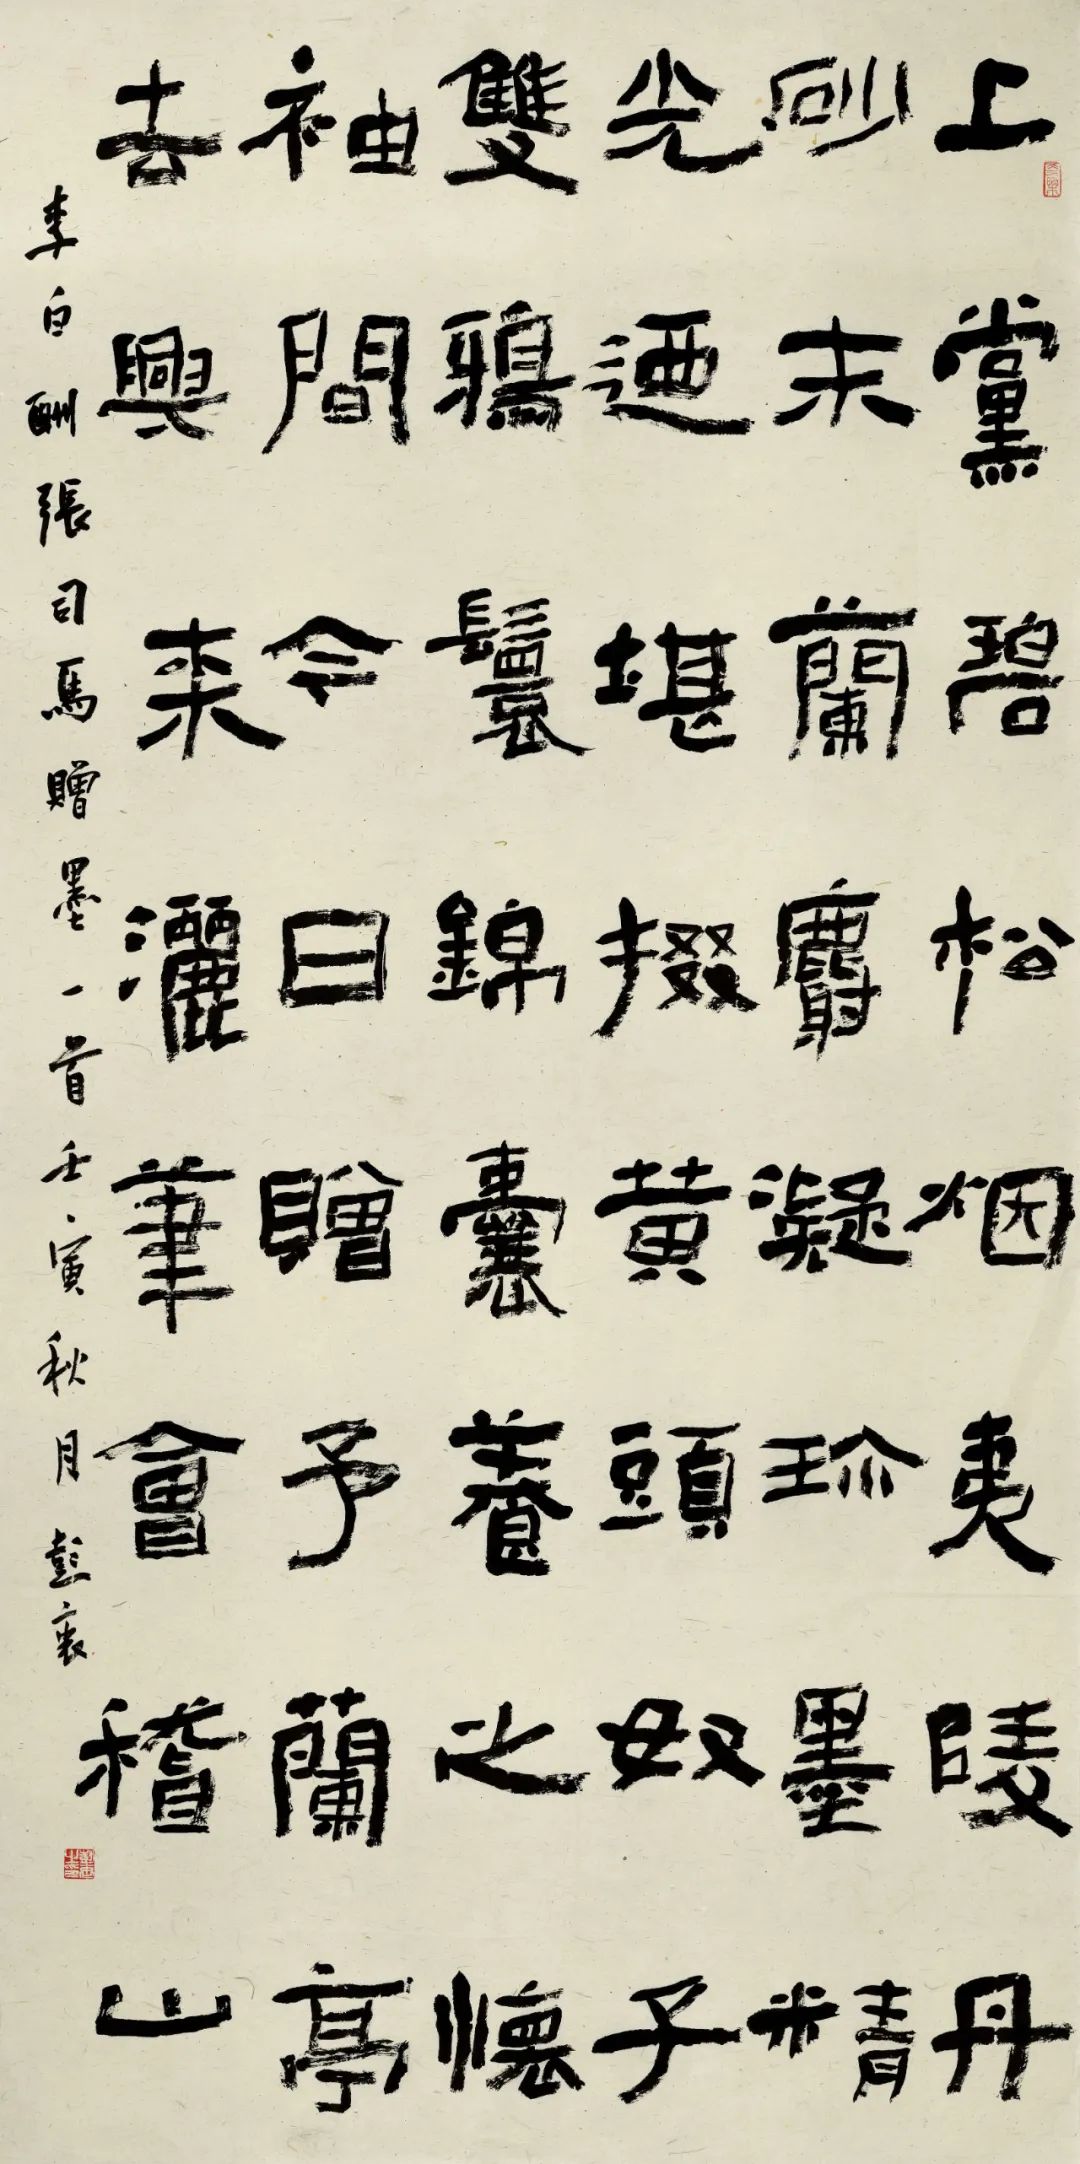 上黨碧松烟夷陵丹
砂末蘭麝凝珍墨精
光迺堪掇黄頭奴子
雙鴉鬟錦囊養之懷
袖間今日贈予蘭亭
去興来灑筆會稽山
李白酬張司馬贈墨一首壬寅秋月彭